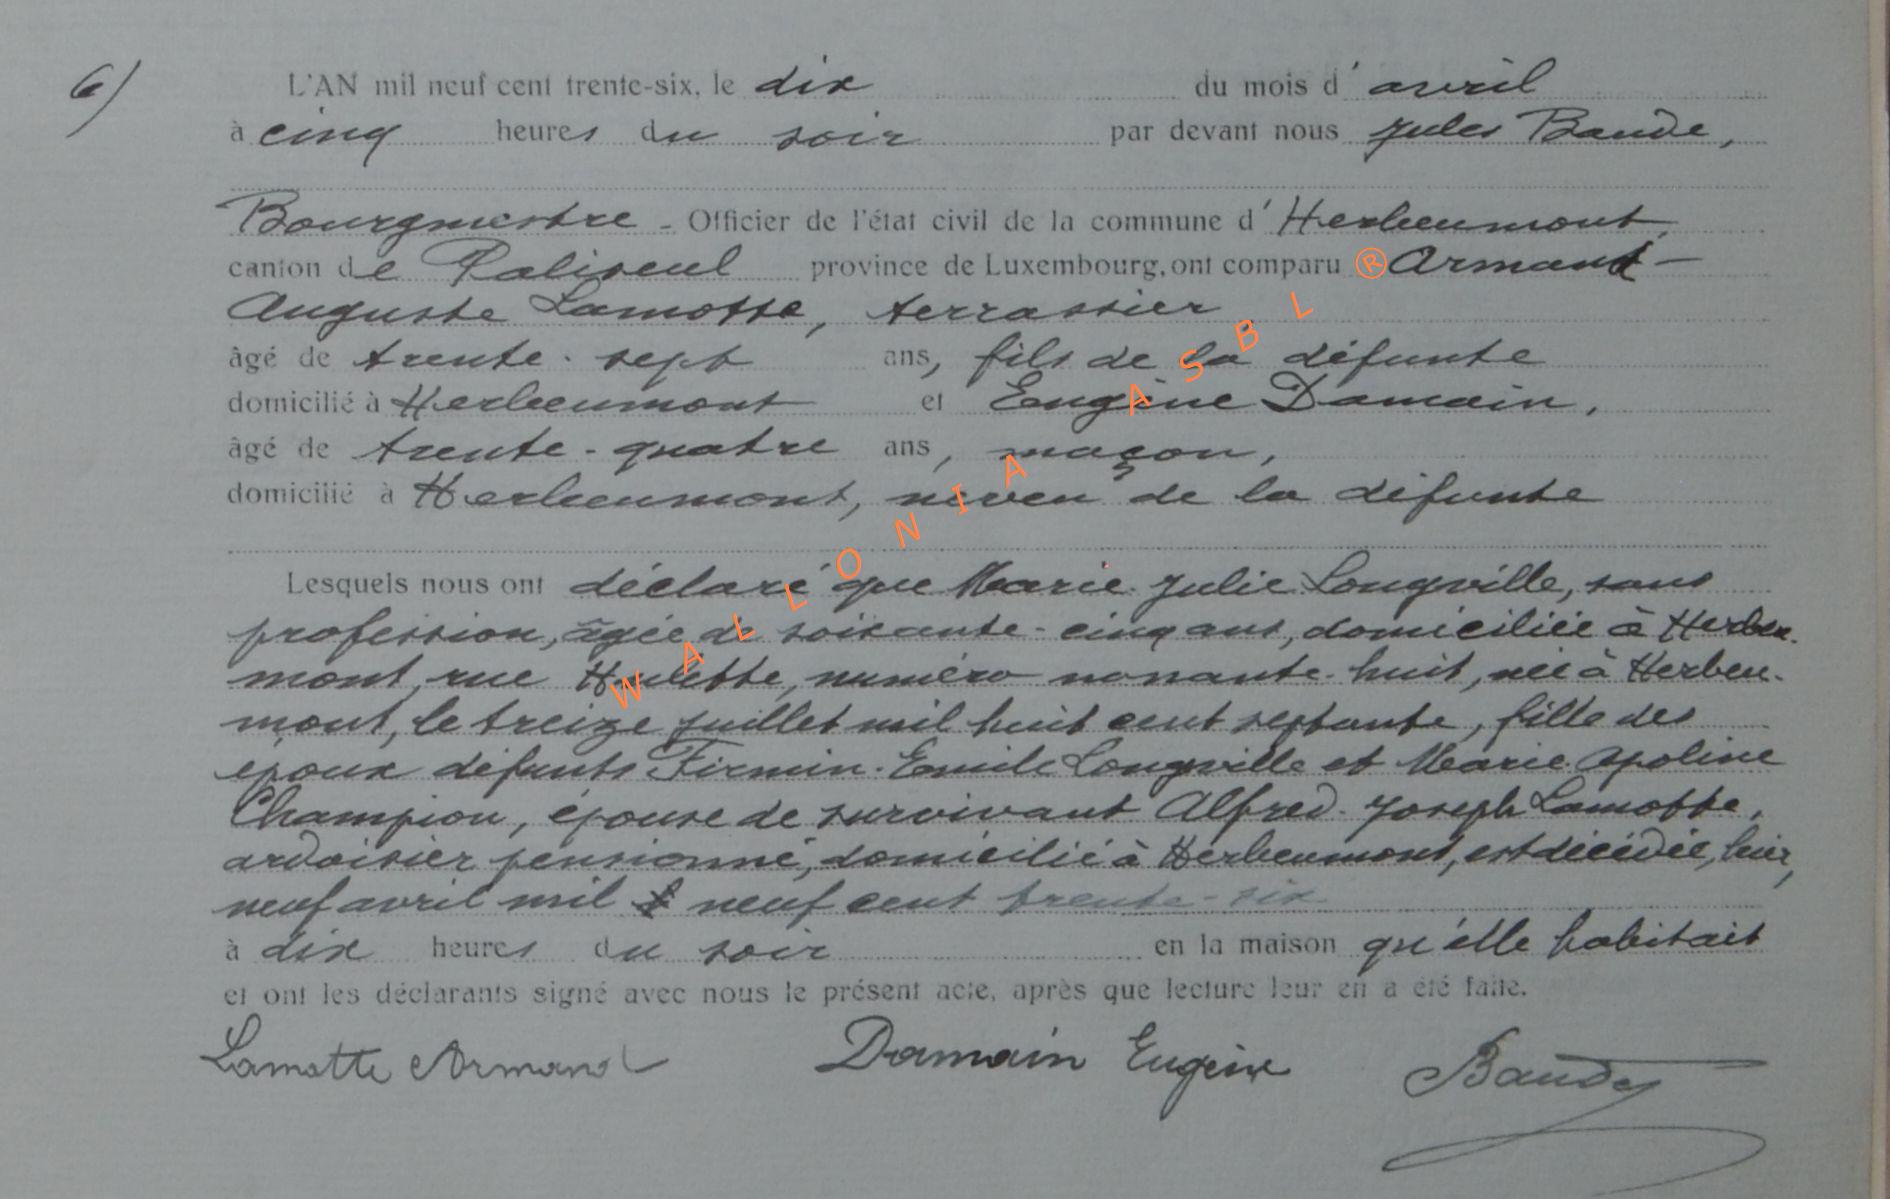 6)
L'AN mil neuf cent trente-six, le dix du mois d' avril
à cinq heures du soir par devant nous Jules Baude,
Bourgmestre - Officier de l'état civil de la commune d' Herbeumont,
canton de Paliseul province de Luxembourg, ont comparu ® Armand -
Auguste Lamotte, terrassier
âgé de trente-sept ans, fils de la défunte
domicilié à Herbeumont et Eugène Damain,
âgé de trente-quatre ans, maçon,
domicilié à Herbeumont, neveu de la défunte
Lesquels nous ont déclaré que Marie-Julie Longville, sans
profession, âgée de soixante-cinq ans, domiciliée à Herbeu-
mont, rue numéro nonante-huit, née à Herbeu-
mont, le treize juillet mil huit cent septante, fille des
époux défunts Firmin-Emile Longville et Marie Apoline
Champion, épouse de survivant Alfred-Joseph Lamotte,
ardoisier pensionné, domicilié à Herbeumont, est décédée, hier,
neuf avril mil neuf cent trente-six
à dix heures du soir en la maison qu'elle habitait
et ont les déclarants signé avec nous le présent acte, après que lecture leur en a été faite.
Lamotte Armand Damain Eugène Baude
WALLONIA ASBL